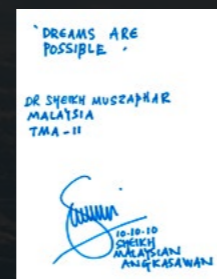 "DREAMS ARE
POSSIBLE"
DR SHEIKH MUSZAPHAR
MALAYSIA
TMA-11
10-10-10
SHEIKH
MALAYSIAN
ANGKASAWAN